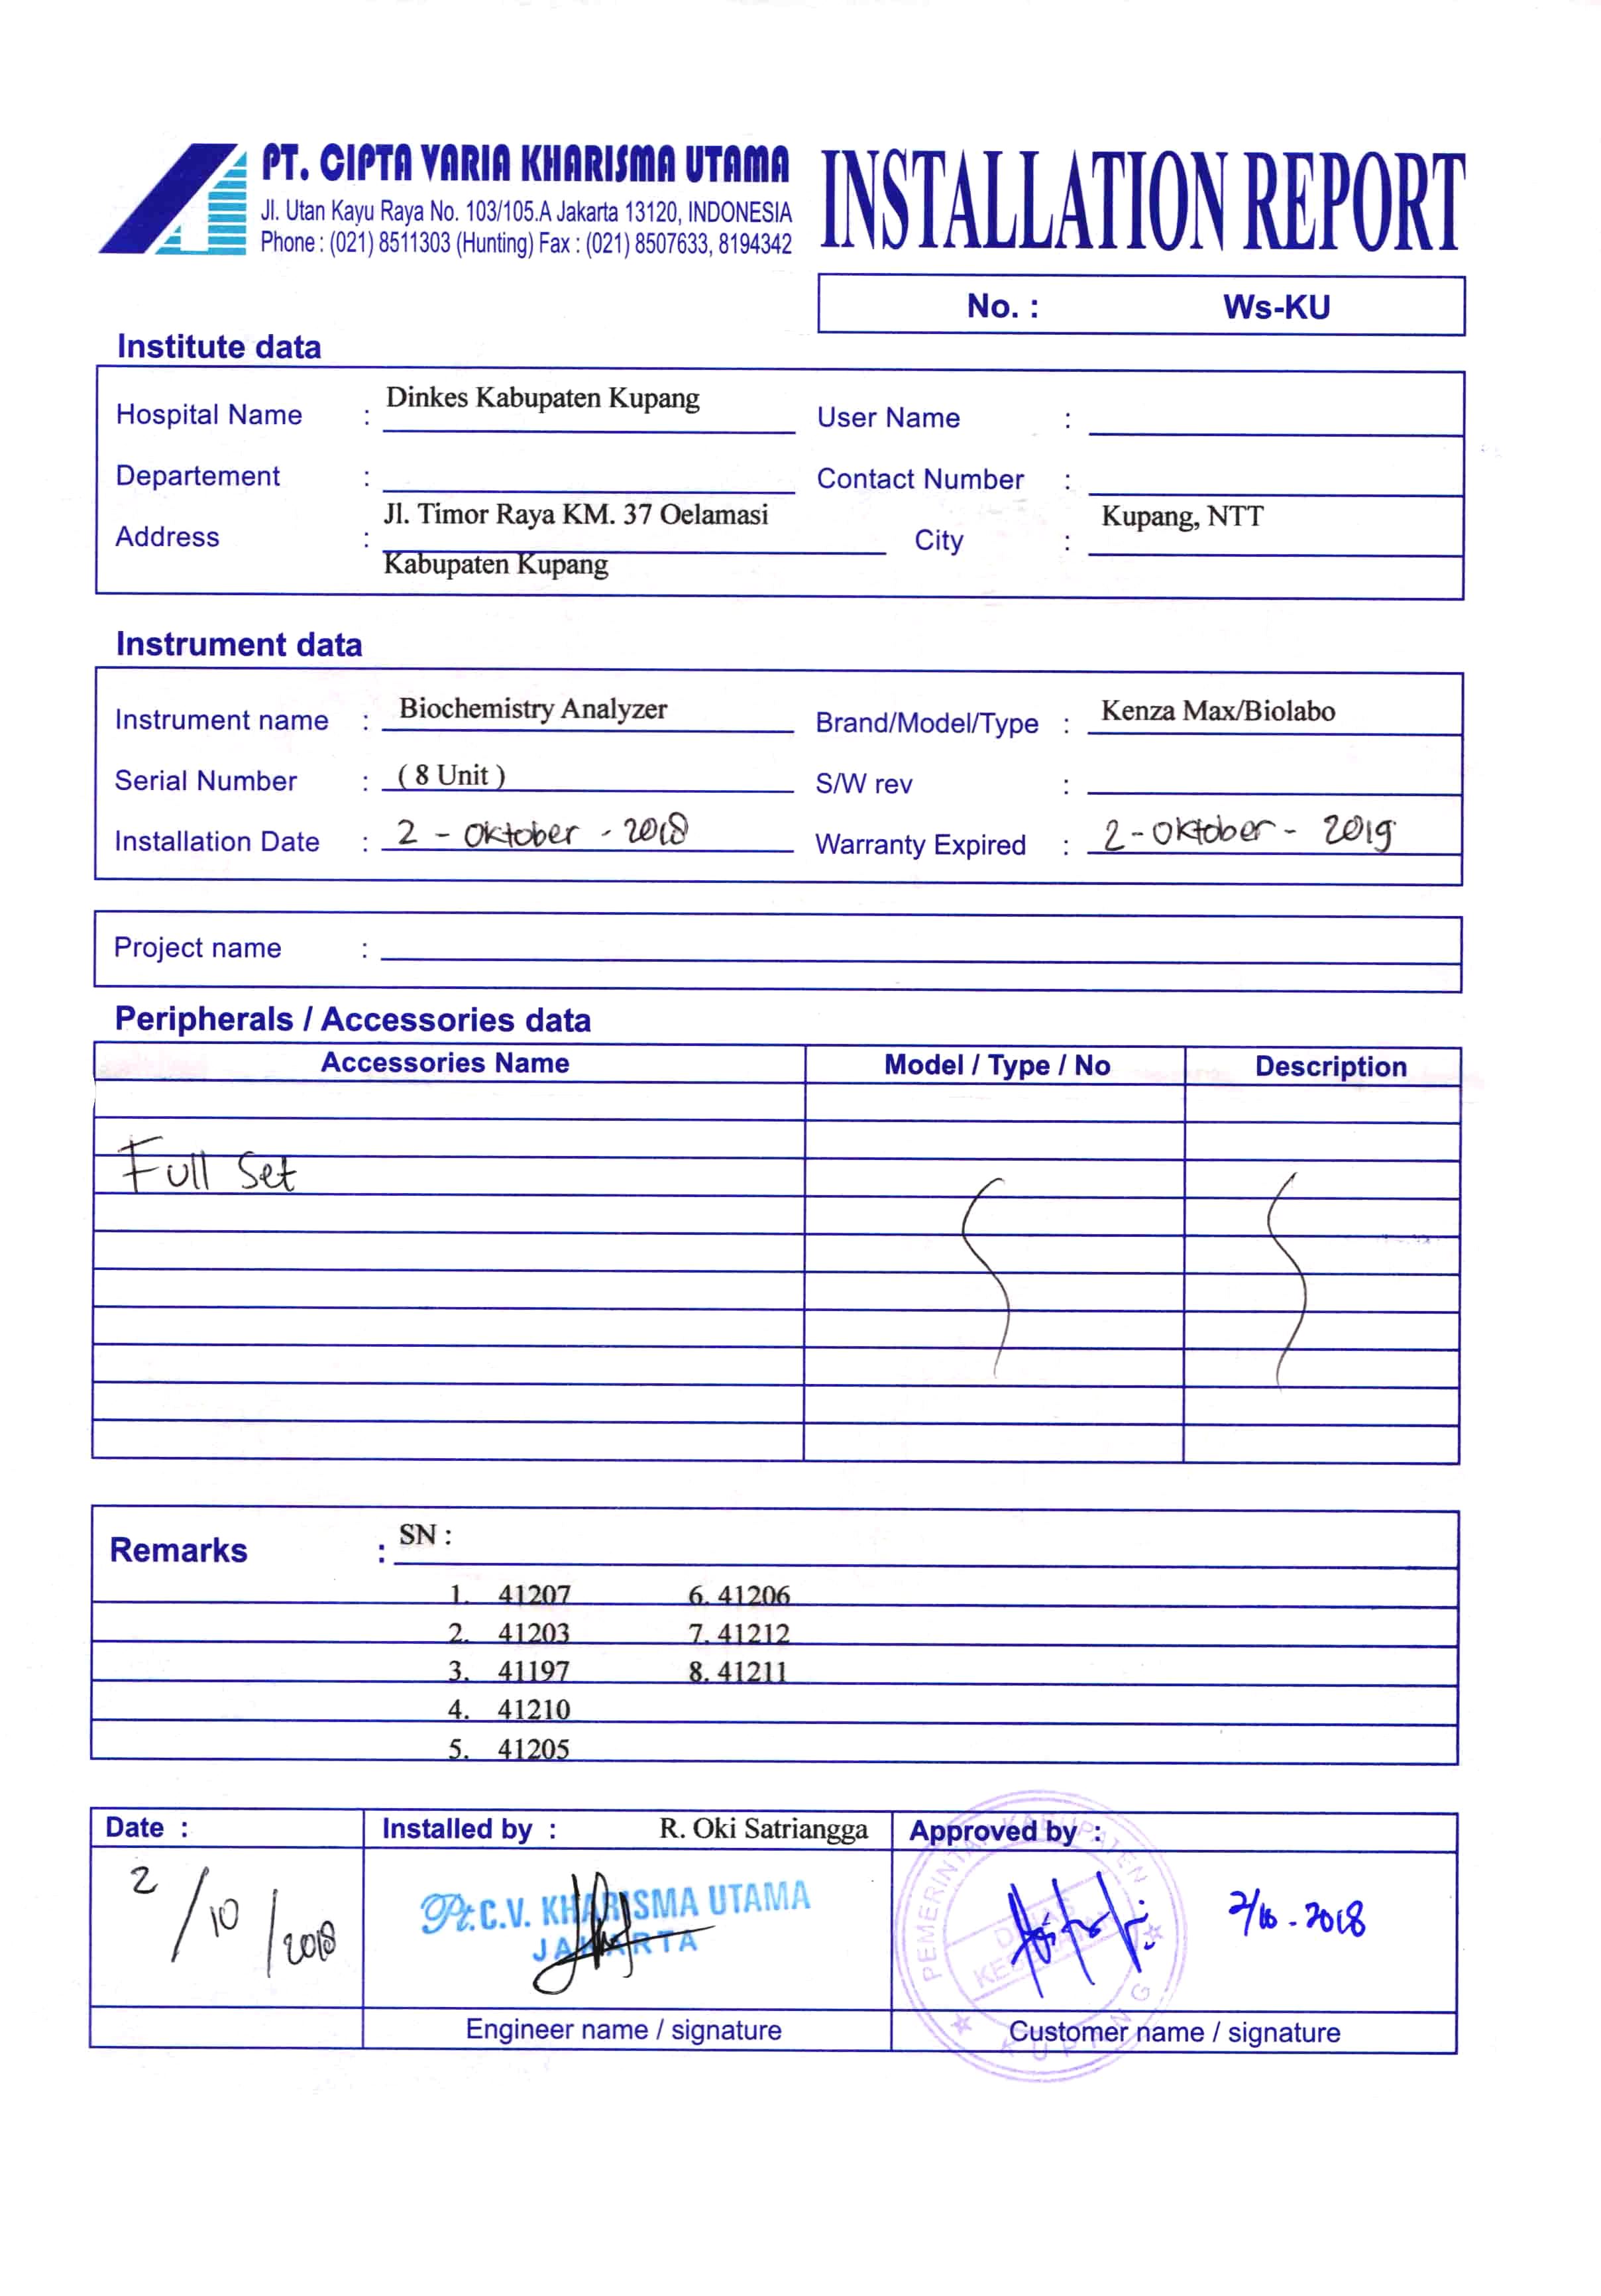 PT. CIPTA VARIA KHARISMA UTAMA
Jl. Utan Kayu Raya No. 103/105.A Jakarta 13120, INDONESIA
Phone : (021) 8511303 (Hunting) Fax : (021) 8507633, 8194342
INSTALLATION REPORT
No. : Ws-KU
Institute data
Hospital Name : Dinkes Kabupaten Kupang User Name :
Departement : Contact Number :
Address : Jl. Timor Raya KM. 37 Oelamasi City : Kupang, NTT
Kabupaten Kupang
Instrument data
Instrument name : Biochemistry Analyzer Brand/Model/Type : Kenza Max/Biolabo
Serial Number : ( 8 Unit ) S/W rev :
Installation Date : 2 - Oktober - 2018 Warranty Expired : 2 - Oktober - 2019
Project name :
Peripherals / Accessories data
Accessories Name Model / Type / No Description
Full Set
Remarks : SN :
1. 41207 6. 41206
2. 41203 7. 41212
3. 41197 8. 41211
4. 41210
5. 41205
Date : Installed by : R. Oki Satriangga Approved by :
2/10/2018
Pt.C.V. KHARISMA UTAMA
JAKARTA
PEMERINTAH KABUPATEN
DINAS
KESEHATAN
KUPANG
2/10 - 2018
Engineer name / signature Customer name / signature